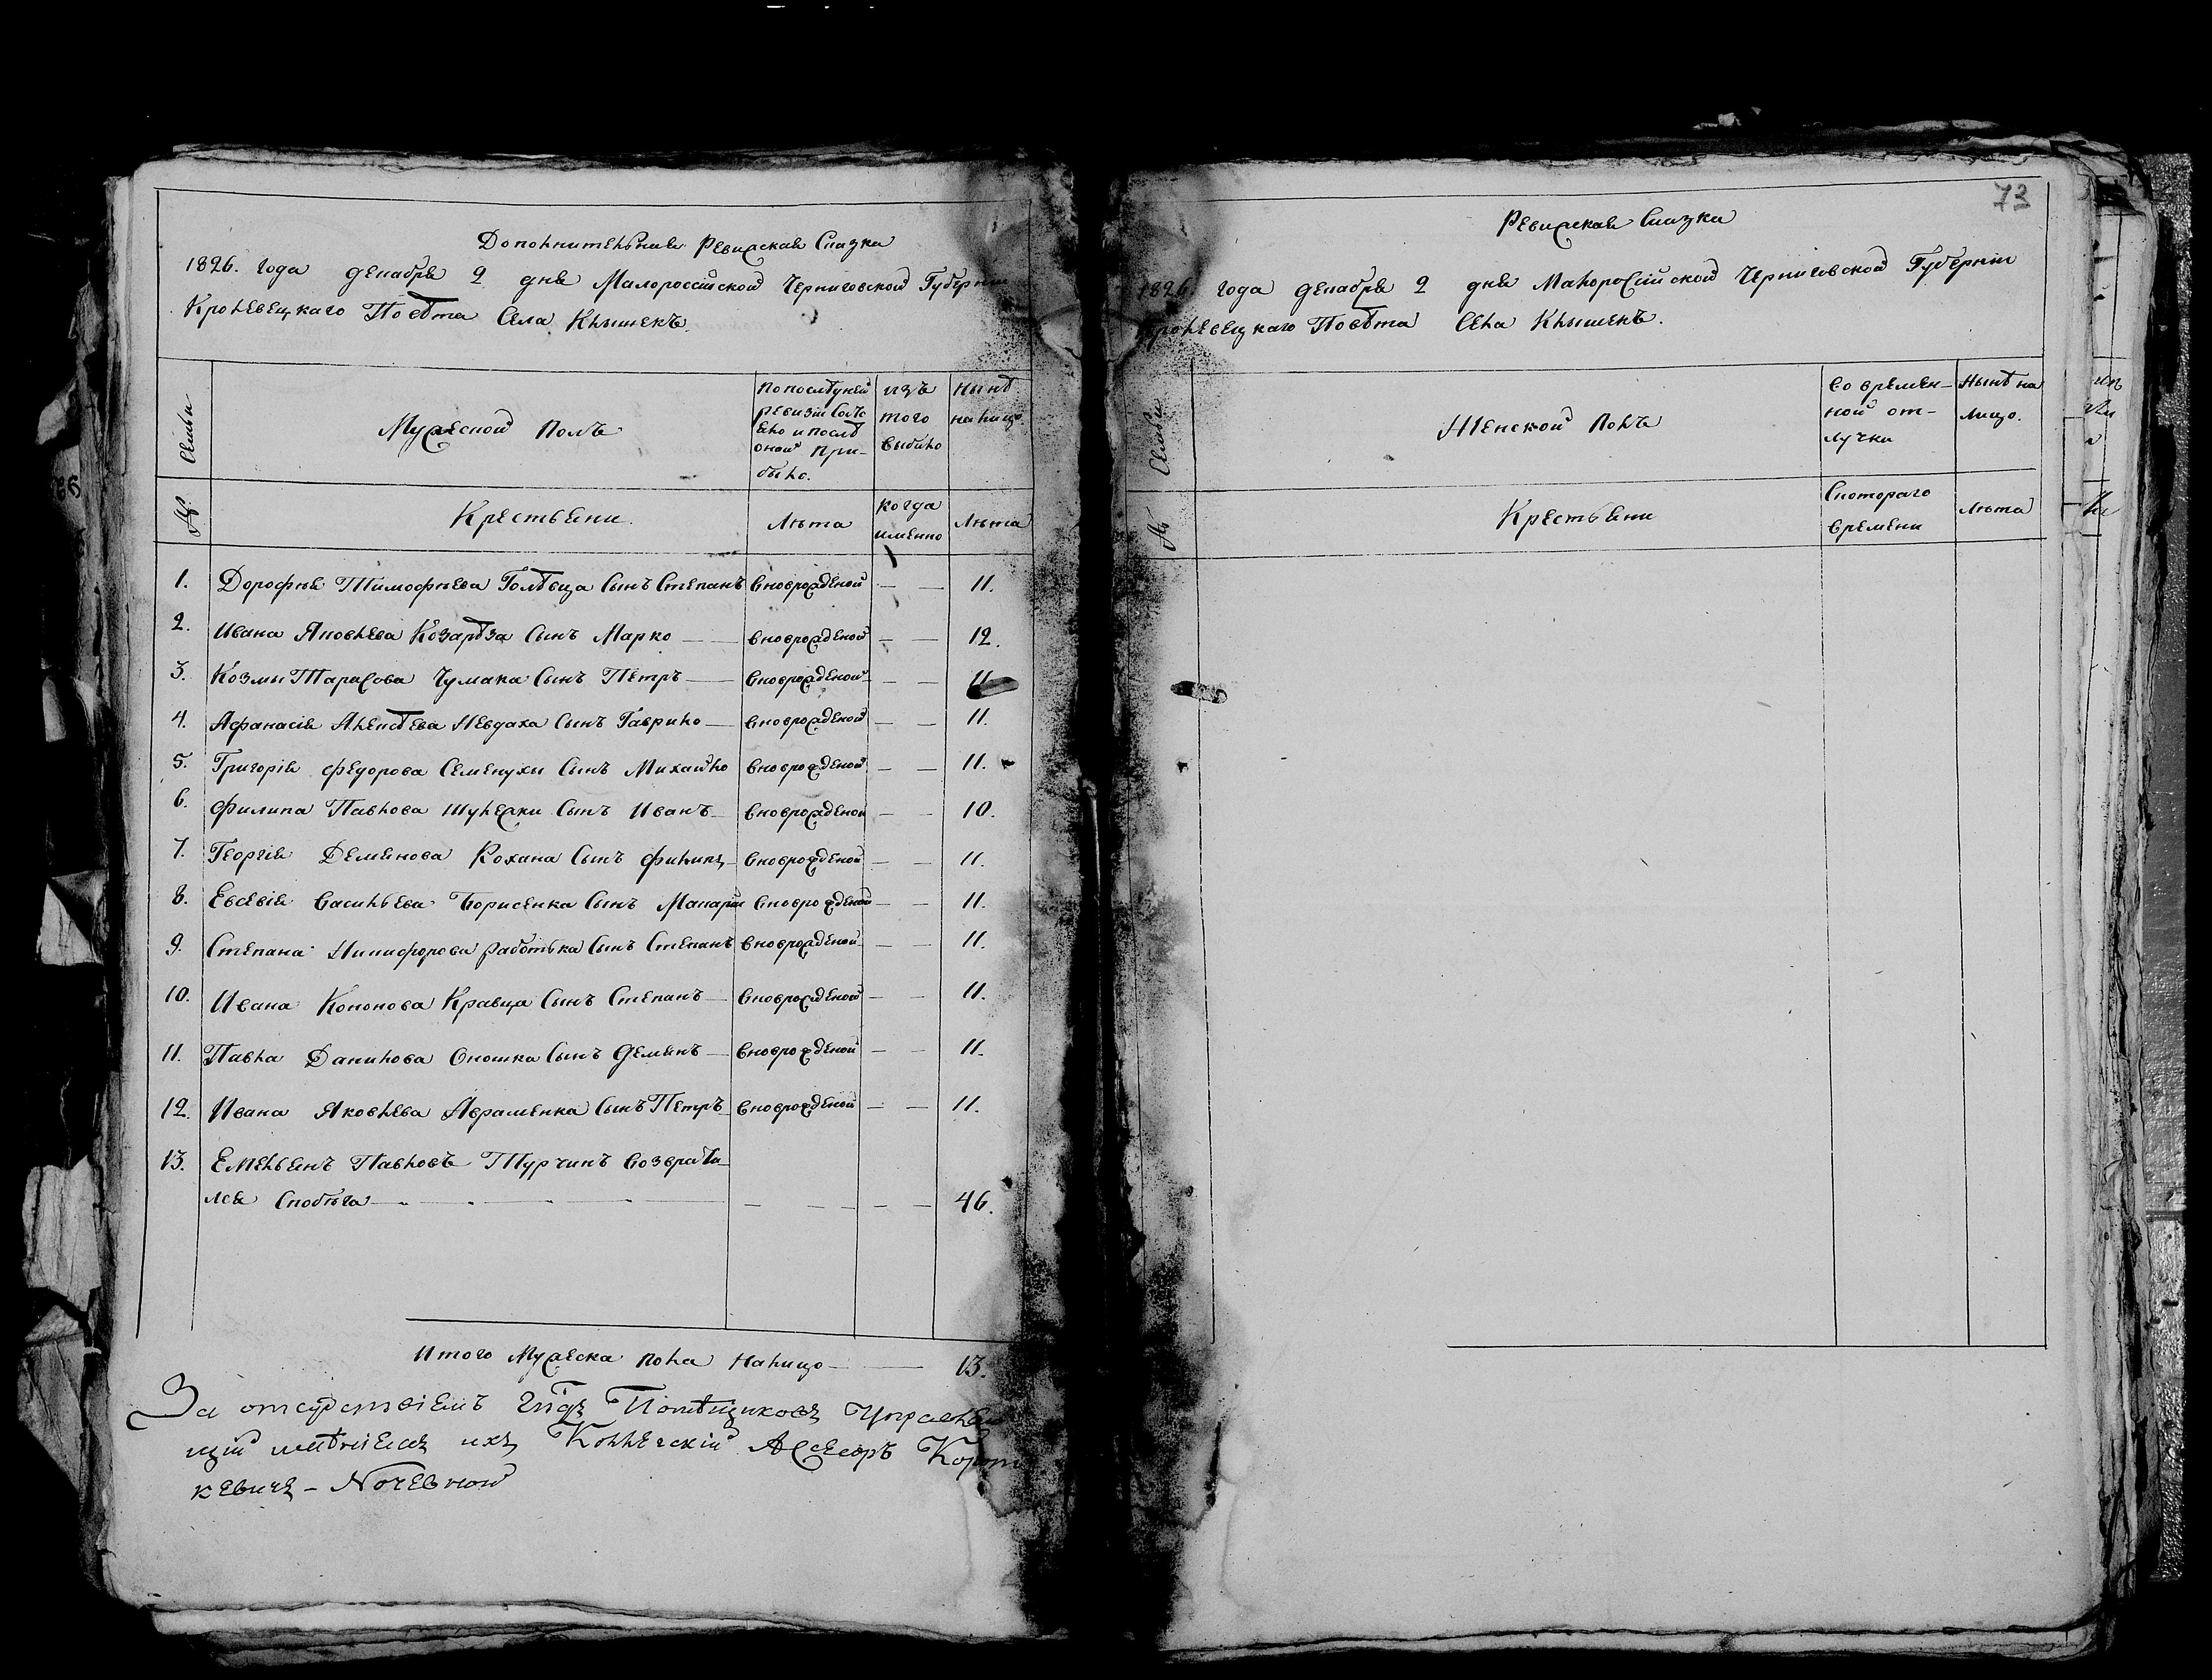 Дополнительная Ревизская Сказка
1826. года декабря 2 дня Малороссійской Черниговской Губерніи
Кролевецкаго Повѣта Села Клишекъ.
Семьи
Мужеской Полъ
По послѣдней
ревизіи Состо
яло и послѣ
оной при-
было.
изъ
того
выбыло
Нынѣ
на лицо.
№
Крестьяни.
Лѣта
когда
именно
Лѣта
1. Дорофея Тимофѣева Голѣвца Сынъ Степанъ вноврожденой — — 11.
2. Ивана Яковлева Козарѣза Сынъ Марко — вноврожденой — — 12.
3. Козмы Тарасова Чумака Сынъ Петръ — вноврожденой — — 11
4. Афанасія Алексѣева Невдаха Сынъ Гаврило — вноврожденой — — 11.
5. Григорія Федорова Семенухи Сынъ Михайло вноврожденой — — 11.
6. Филипа Павлова Шулежки Сынъ Иванъ — вноврожденой — — 10.
7. Георгія Демянова Кохана Сынъ Филипъ — вноврожденой — — 11.
8. Евсевія Васильева Борисенка Сынъ Макарій вноврожденой — — 11.
9. Степана Никифорова Работька Сынъ Степанъ вноврожденой — — 11.
10. Ивана Кононова Кравца Сынъ Степанъ — вноврожденой — — 11.
11. Павла Данилова Оношка Сынъ Демянъ — вноврожденой — — 11.
12. Ивана Яковлева Авраменка Сынъ Петръ вноврожденой — — 11.
13. Емельянъ Павловъ Турчинъ возврати-
лся Спобѣга — — — — — — 46.
Итого Мужеска пола налицо — 13.
За отсудствіемъ Помѣщиковъ Управляю
щій имѣніемъ ихъ Коллежскій Ассесоръ
73
Ревизская Сказка
1826 года декабря 2 дня Малоросійской Черниговской Губерніи
Кролевецкаго Повѣта Села Клишекъ.
Семьи
Женской Полъ
Во времен-
ной от-
лучки
Нынѣ на
лицо.
№
Крестьяни
Скотораго
времени
Лѣта